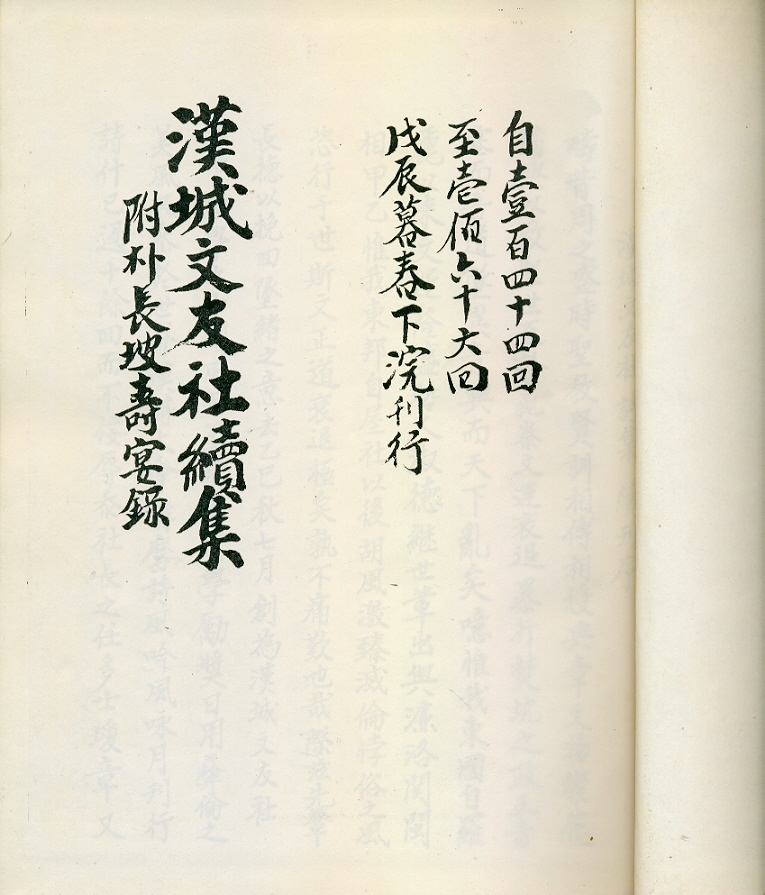 自壹百四十四回
至壱佰六十六回
戊辰暮春下浣刊行
漢城文友社續集
附朴長坡壽宴錄